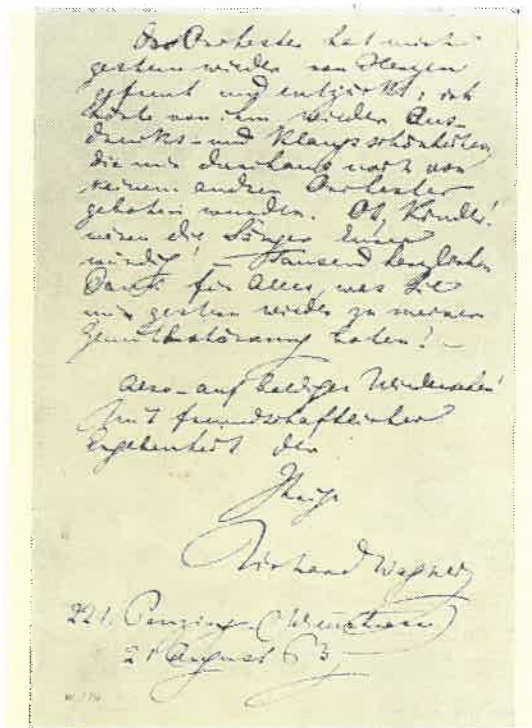 Das Orchester hat mich
gestern wieder von Herzen
gefreut und entzückt; ich
hörte von ihm wieder Aus-
drucks- und Klangschönheiten,
die mir durchaus noch von
keinem andren Orchester
geboten wurden. Oh, Kinder!
wären die Sänger Eurer
würdig! – Tausend herzlichen
Dank für Alles, was Sie
mir gestern wieder zu meiner
haben! –
Also – auf baldiges Wiedersehen!
Mit freundschaftlicher
Ergebenheit der
Ihrige
Richard Wagner
221. Penzing
21 August 63.